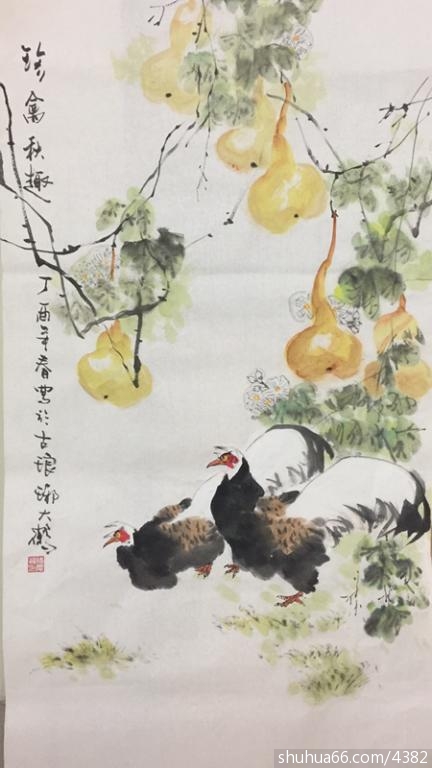 珍禽秋趣
丁酉年春写於古琅琊大鹤
shuhua66.com/4382